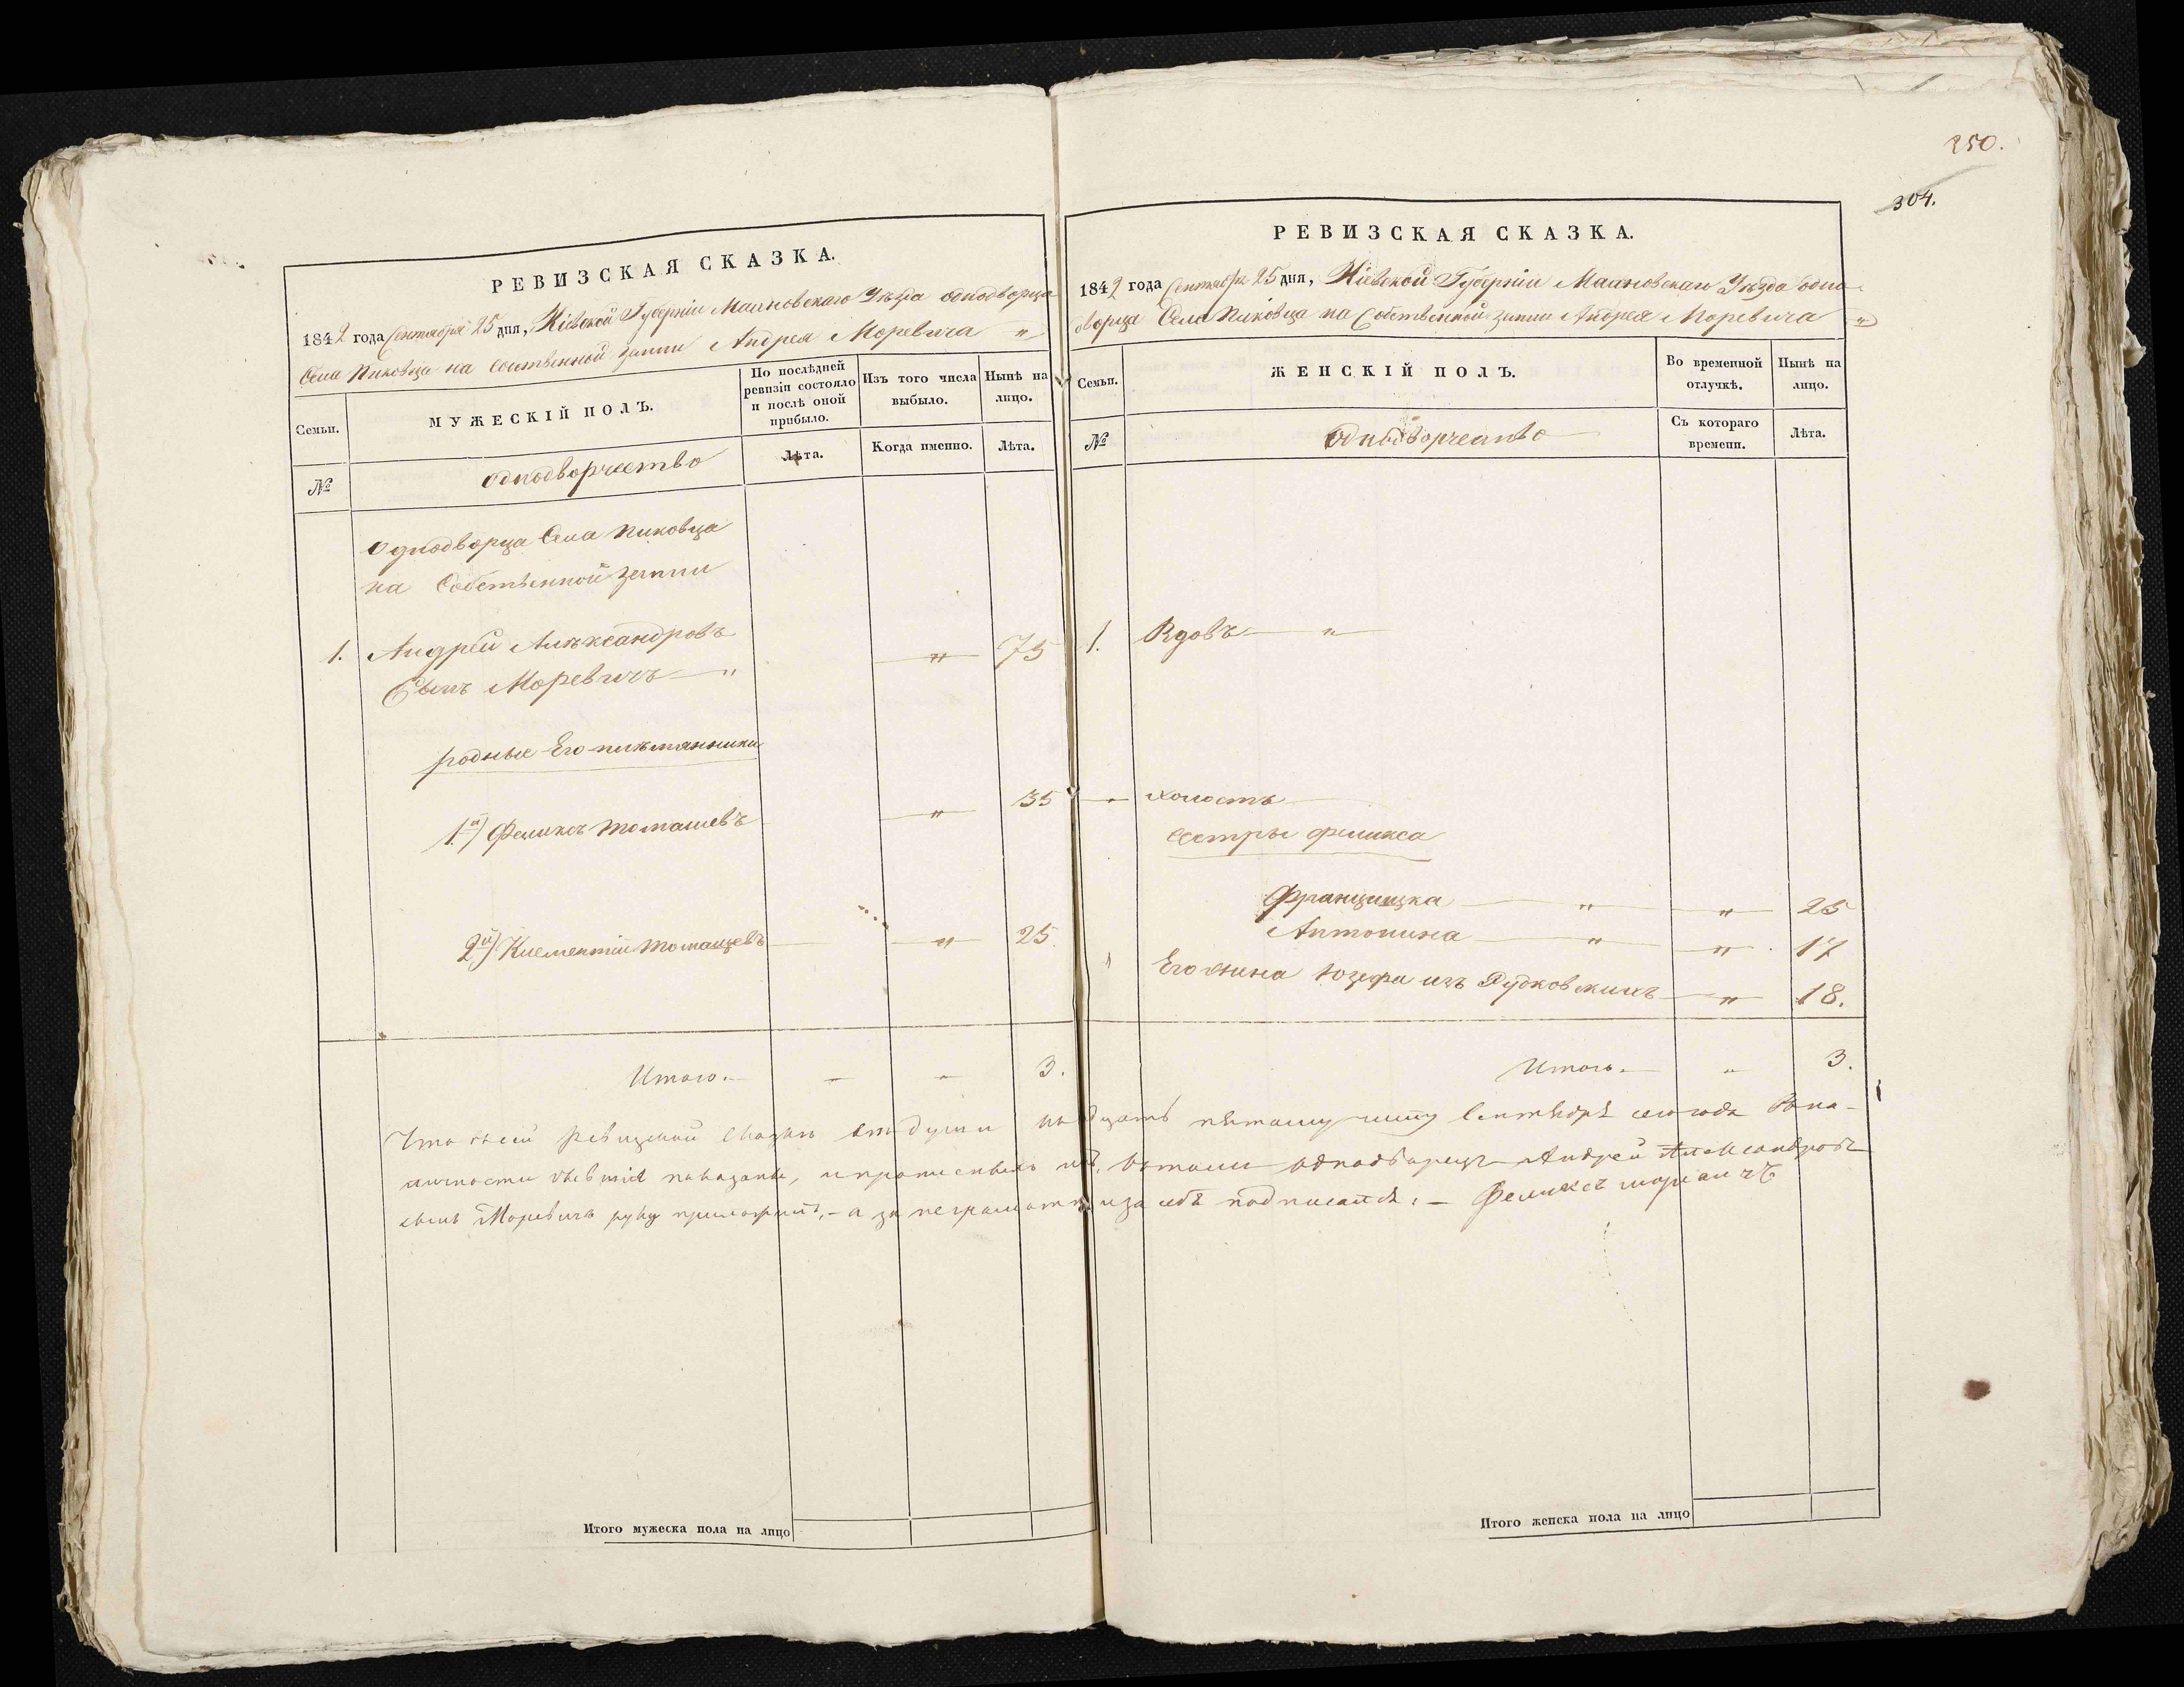 250.
304.
РЕВИЗСКАЯ СКАЗКА.
1842 года Сентября 25 дня, Кіевской Губерніи Уѣзда однодворца
Села Пиковца на собственной земли Андрея Моревича "
Семьи.
МУЖЕСКІЙ ПОЛЪ.
По послѣдней
ревизіи состояло
и послѣ оной
прибыло.
Изъ того числа
выбыло.
Нынѣ на
лицо.
№
однодворчество
Лѣта.
Когда именно.
Лѣта.
Однодворца Села Пиковца
на Собственной земли
1. Андрей Александровъ " 75
Сынъ Моревичъ "
родные Его племянники
1й) Феликсъ Томашевъ " 35
2й) Клементій Томашевъ " 25
Итого. 3.
РЕВИЗСКАЯ СКАЗКА.
1842 года Сентября 25 дня, Кіевской Губерніи Уѣзда одно-
дворца Села Пиковца на Собственной земли Андрея Моревича "
Семьи.
ЖЕНСКІЙ ПОЛЪ.
Во временной
отлучкѣ.
Нынѣ на
лицо.
№
Однодворчество
Съ котораго
времени.
Лѣта.
1. Вдовъ "
холостъ
сестры феликса
Францишка " " 25
Антонина " " 17
Его жена Юзефа изъ Рудковскихъ " 18.
Итого. " 3.
Что въ сей ревизской сказкѣ всѣ души пятому числу Сентября сего года
показаны, однодворецъ Андрей Александровъ
сынъ Моревичъ руку приложилъ, – а за неграмотн за себѣ подписался: – Феликсъ
Итого мужеска пола на лицо
Итого женска пола на лицо